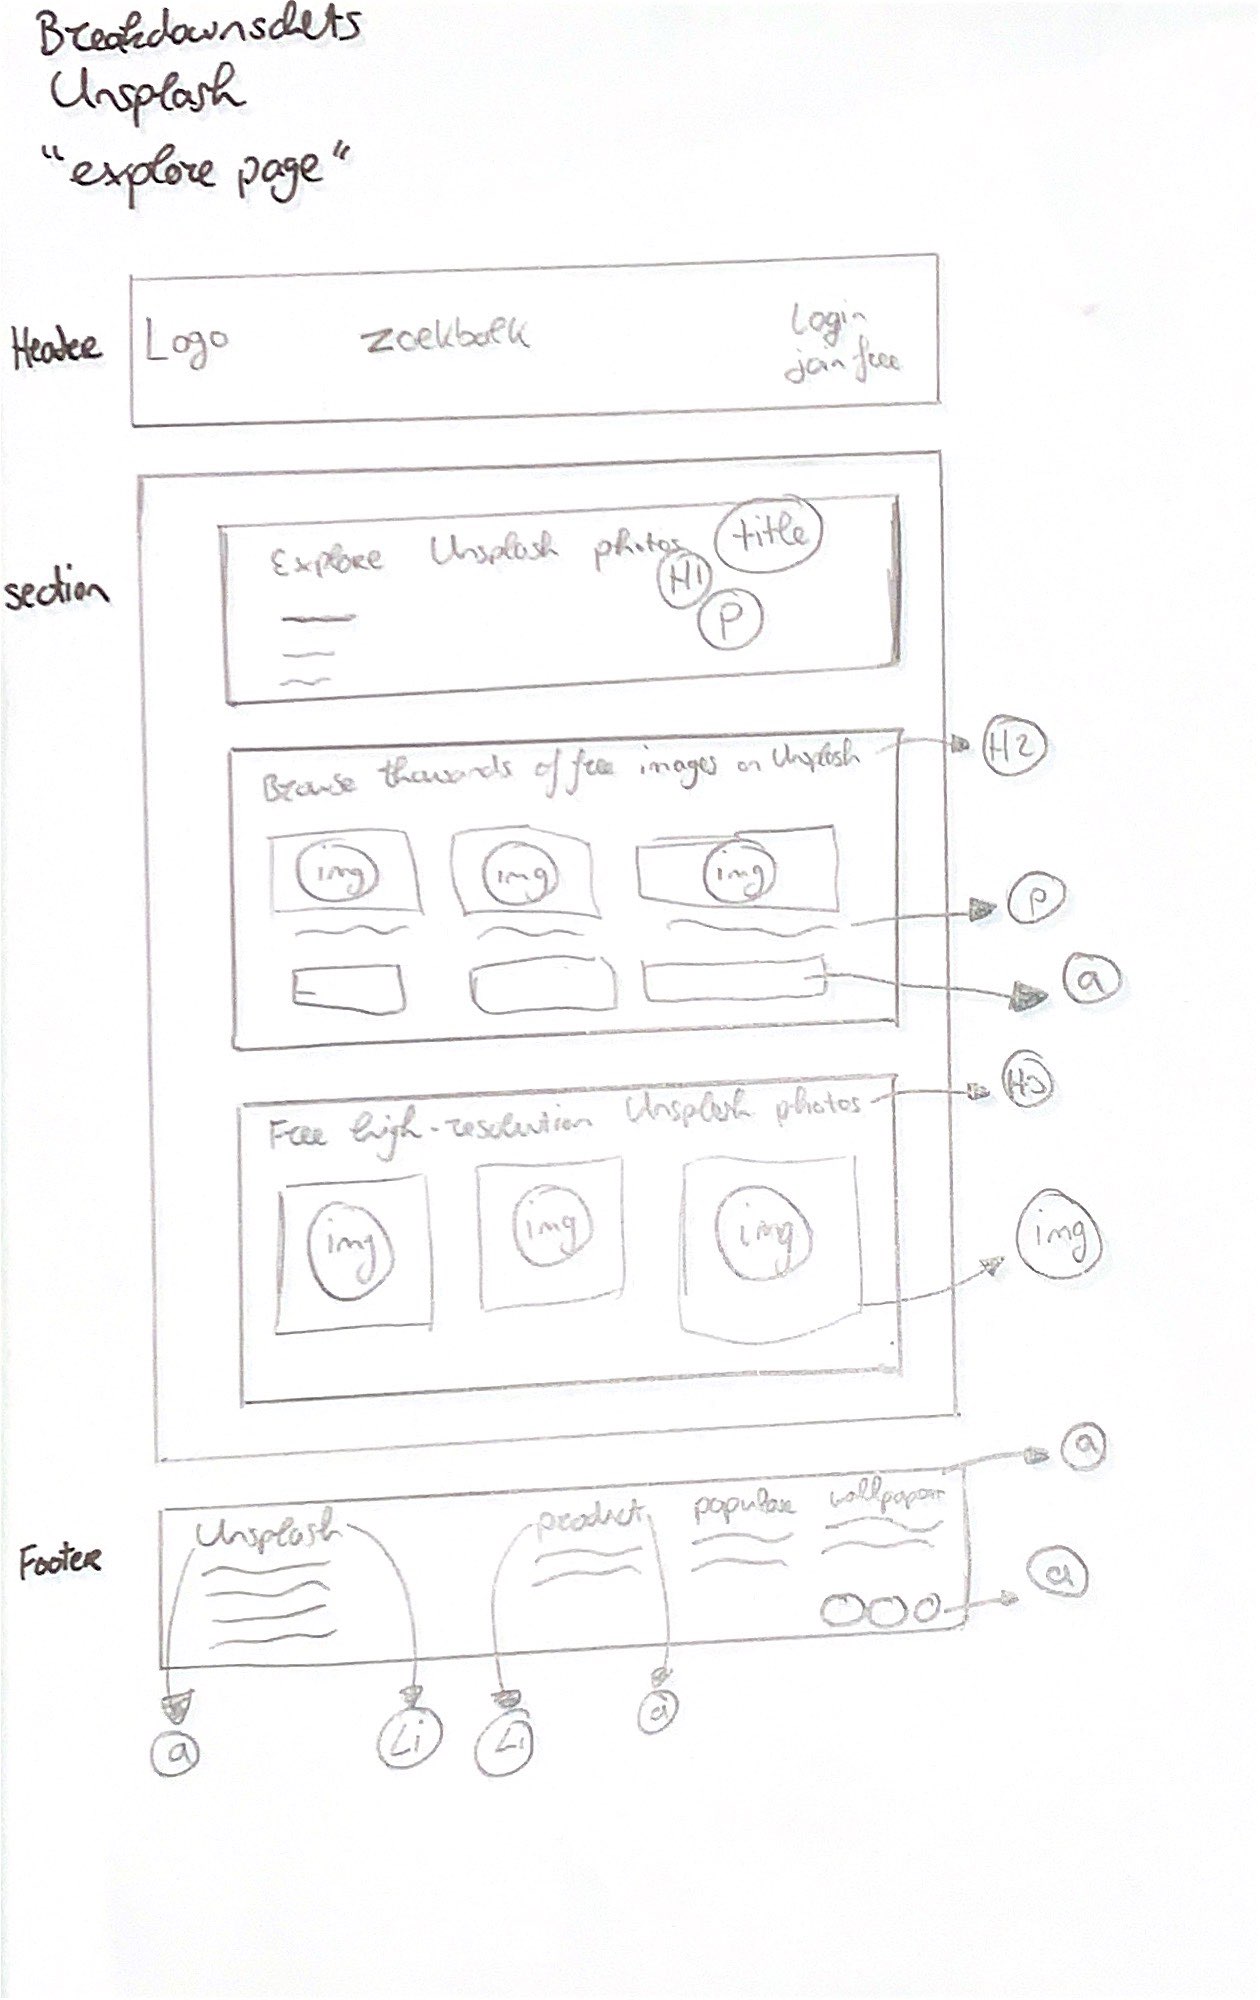 Breakdownschets
Unsplash
"explore page"
Header
Logo
zoekbalk
Login
join free
section
Explore Unsplash photos
title
H1
P
Browse thousands of free images on Unsplash
H2
img
img
img
P
a
Free high-resolution Unsplash photos
H3
img
img
img
img
a
Footer
Unsplash
product
populare
wallpapers
a
a
Li
Li
a